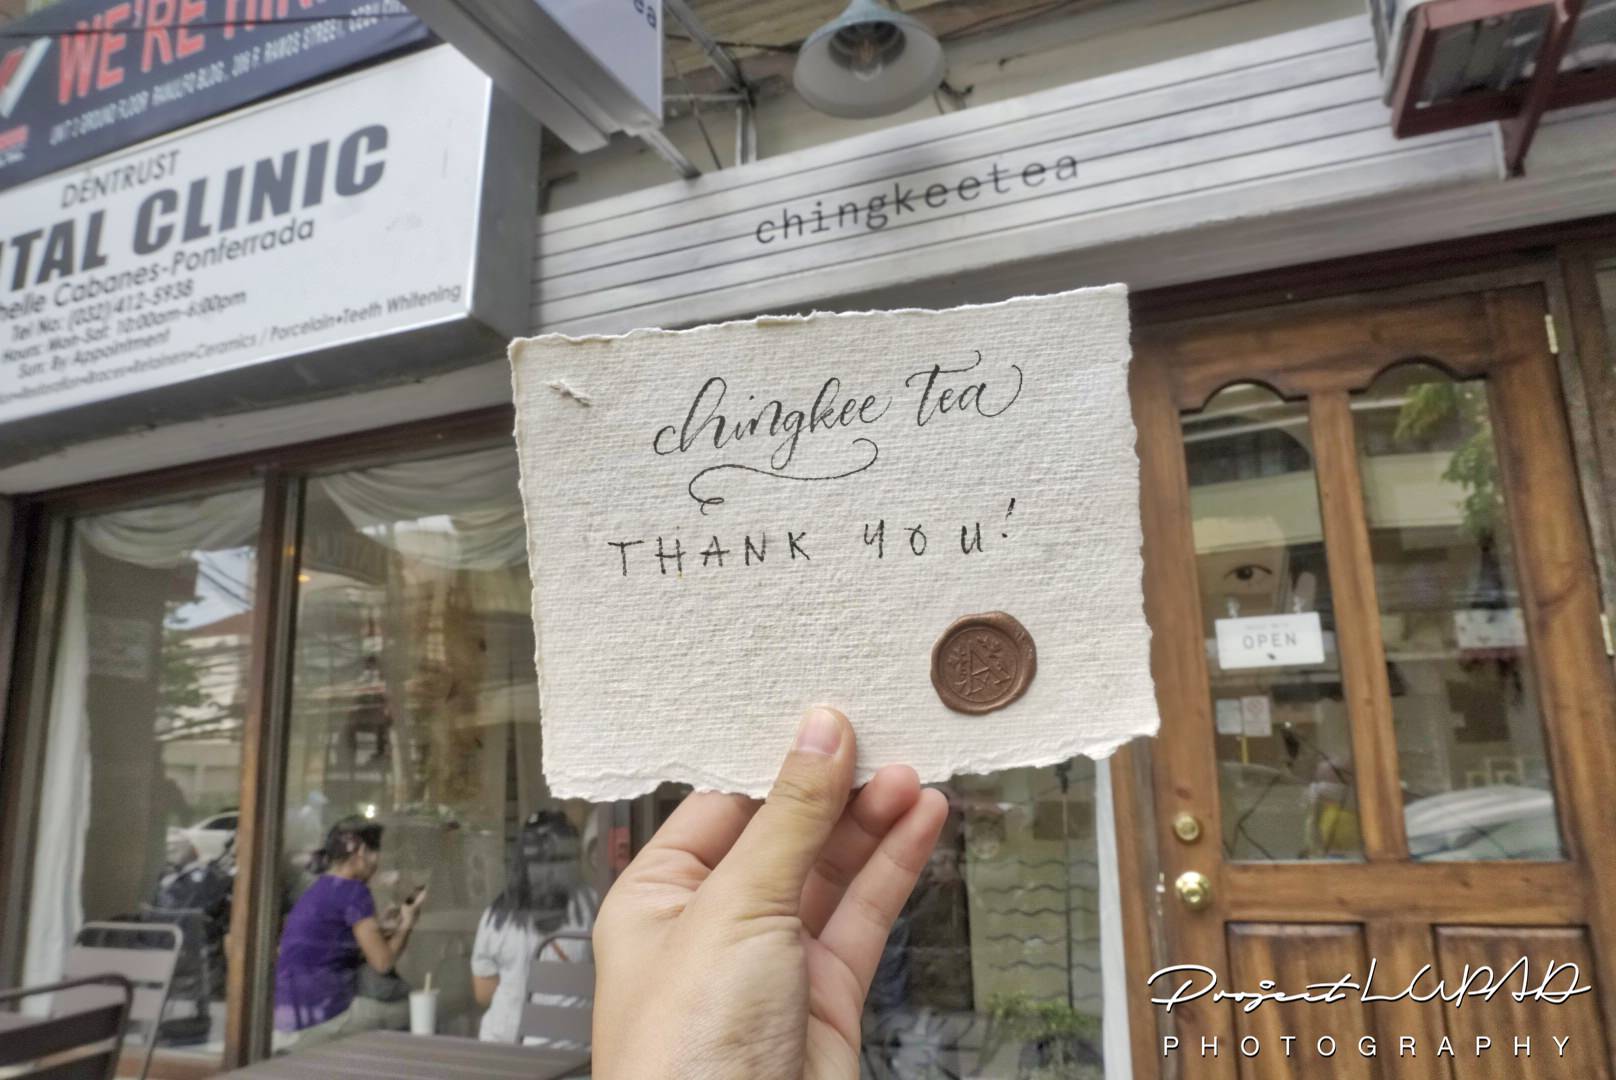 WE'RE
UNIT 2 GROUND FLOOR RANULFO BLDG., 206 F. RAMOS STREET, CEBU
DENTRUST
TAL CLINIC
helle Cabanes-Ponferrada
Tel No: (032)412-5938
Hours: Mon-Sat: 10:00am-6:00pm
Sun: By Appointment
Restoration•Braces•Retainers•Ceramics / Porcelain•Teeth Whitening
ea
chingkeetea
chingkee tea
THANK YOU!
OPEN
Project LUPAD
PHOTOGRAPHY